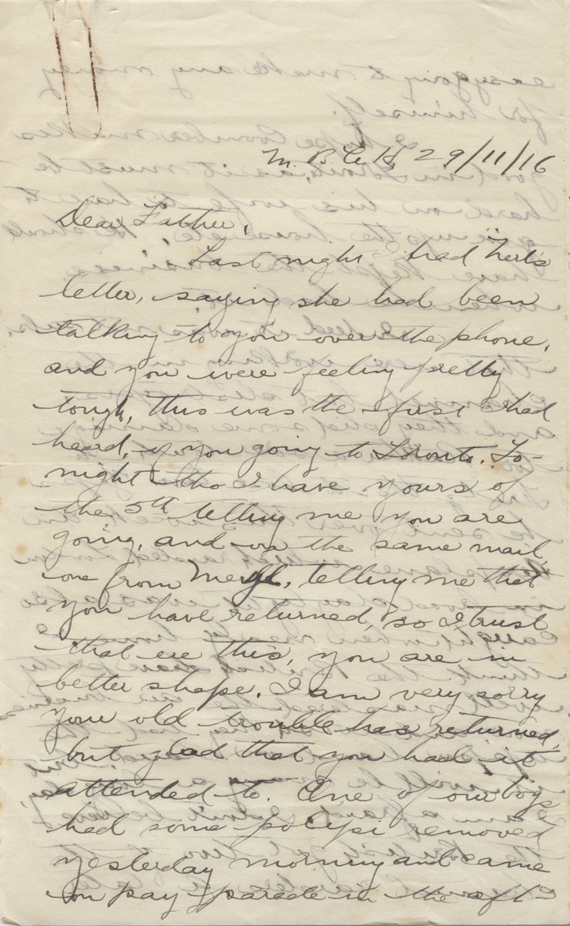 29/11/16
Dear Father,
Last night I had Merle's
letter, saying she had been
talking to you over the phone,
and you were feeling pretty
tough, this was the first I had
heard, of you going to Toronto. To-
night tho I have yours of
the 5th telling me you are
going, and on the same mail
one from Meryl, telling me that
you have returned, so I trust
that ere this, you are in
better shape. I am very sorry
your old trouble has returned,
but glad that you had it
attended to. One of our boys
had some polypi removed
yesterday morning and came
on pay parade in the aft-